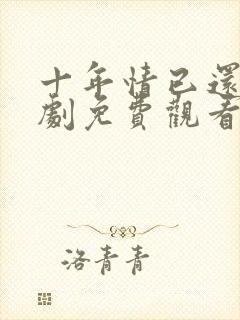 十年情已還
劇免費觀看
洛青青